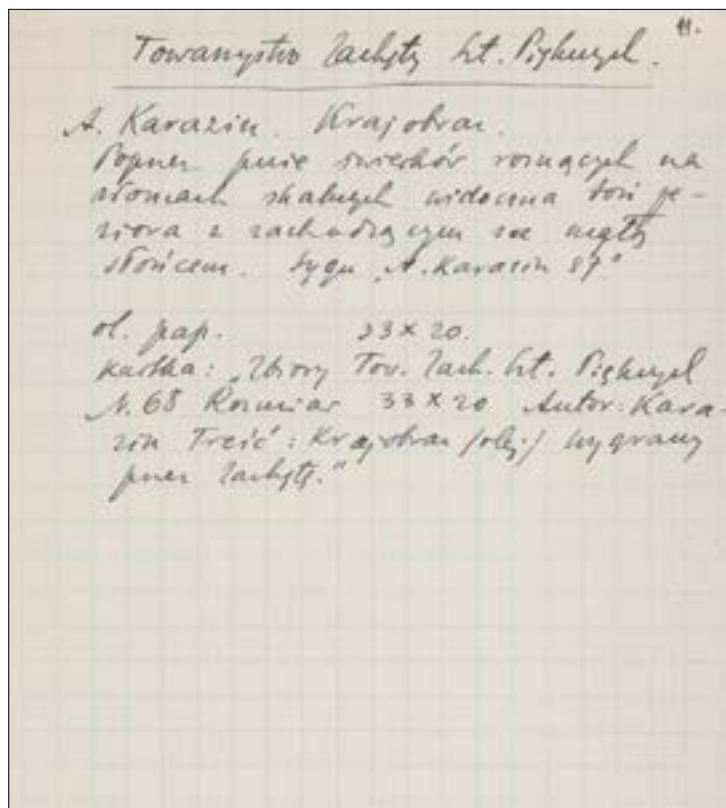 11.
Towarzystwo Zachęty Szt. Pięknych.
A. Karazin. Krajobraz.
Poprzez pnie świerków rosnących na
złomach skalnych widoczna toń je-
ziora z zachodzącym za mgłą
słońcem. Sygn. „A. Karazin 87"
ol. pap. 33 x 20.
Kartka: „Zbiory Tow. Zach. Szt. Pięknych
N. 68 Rozmiar 33 x 20 Autor: Kara
zin Treść: Krajobraz /olej/ wygrany
przez Zachętę."